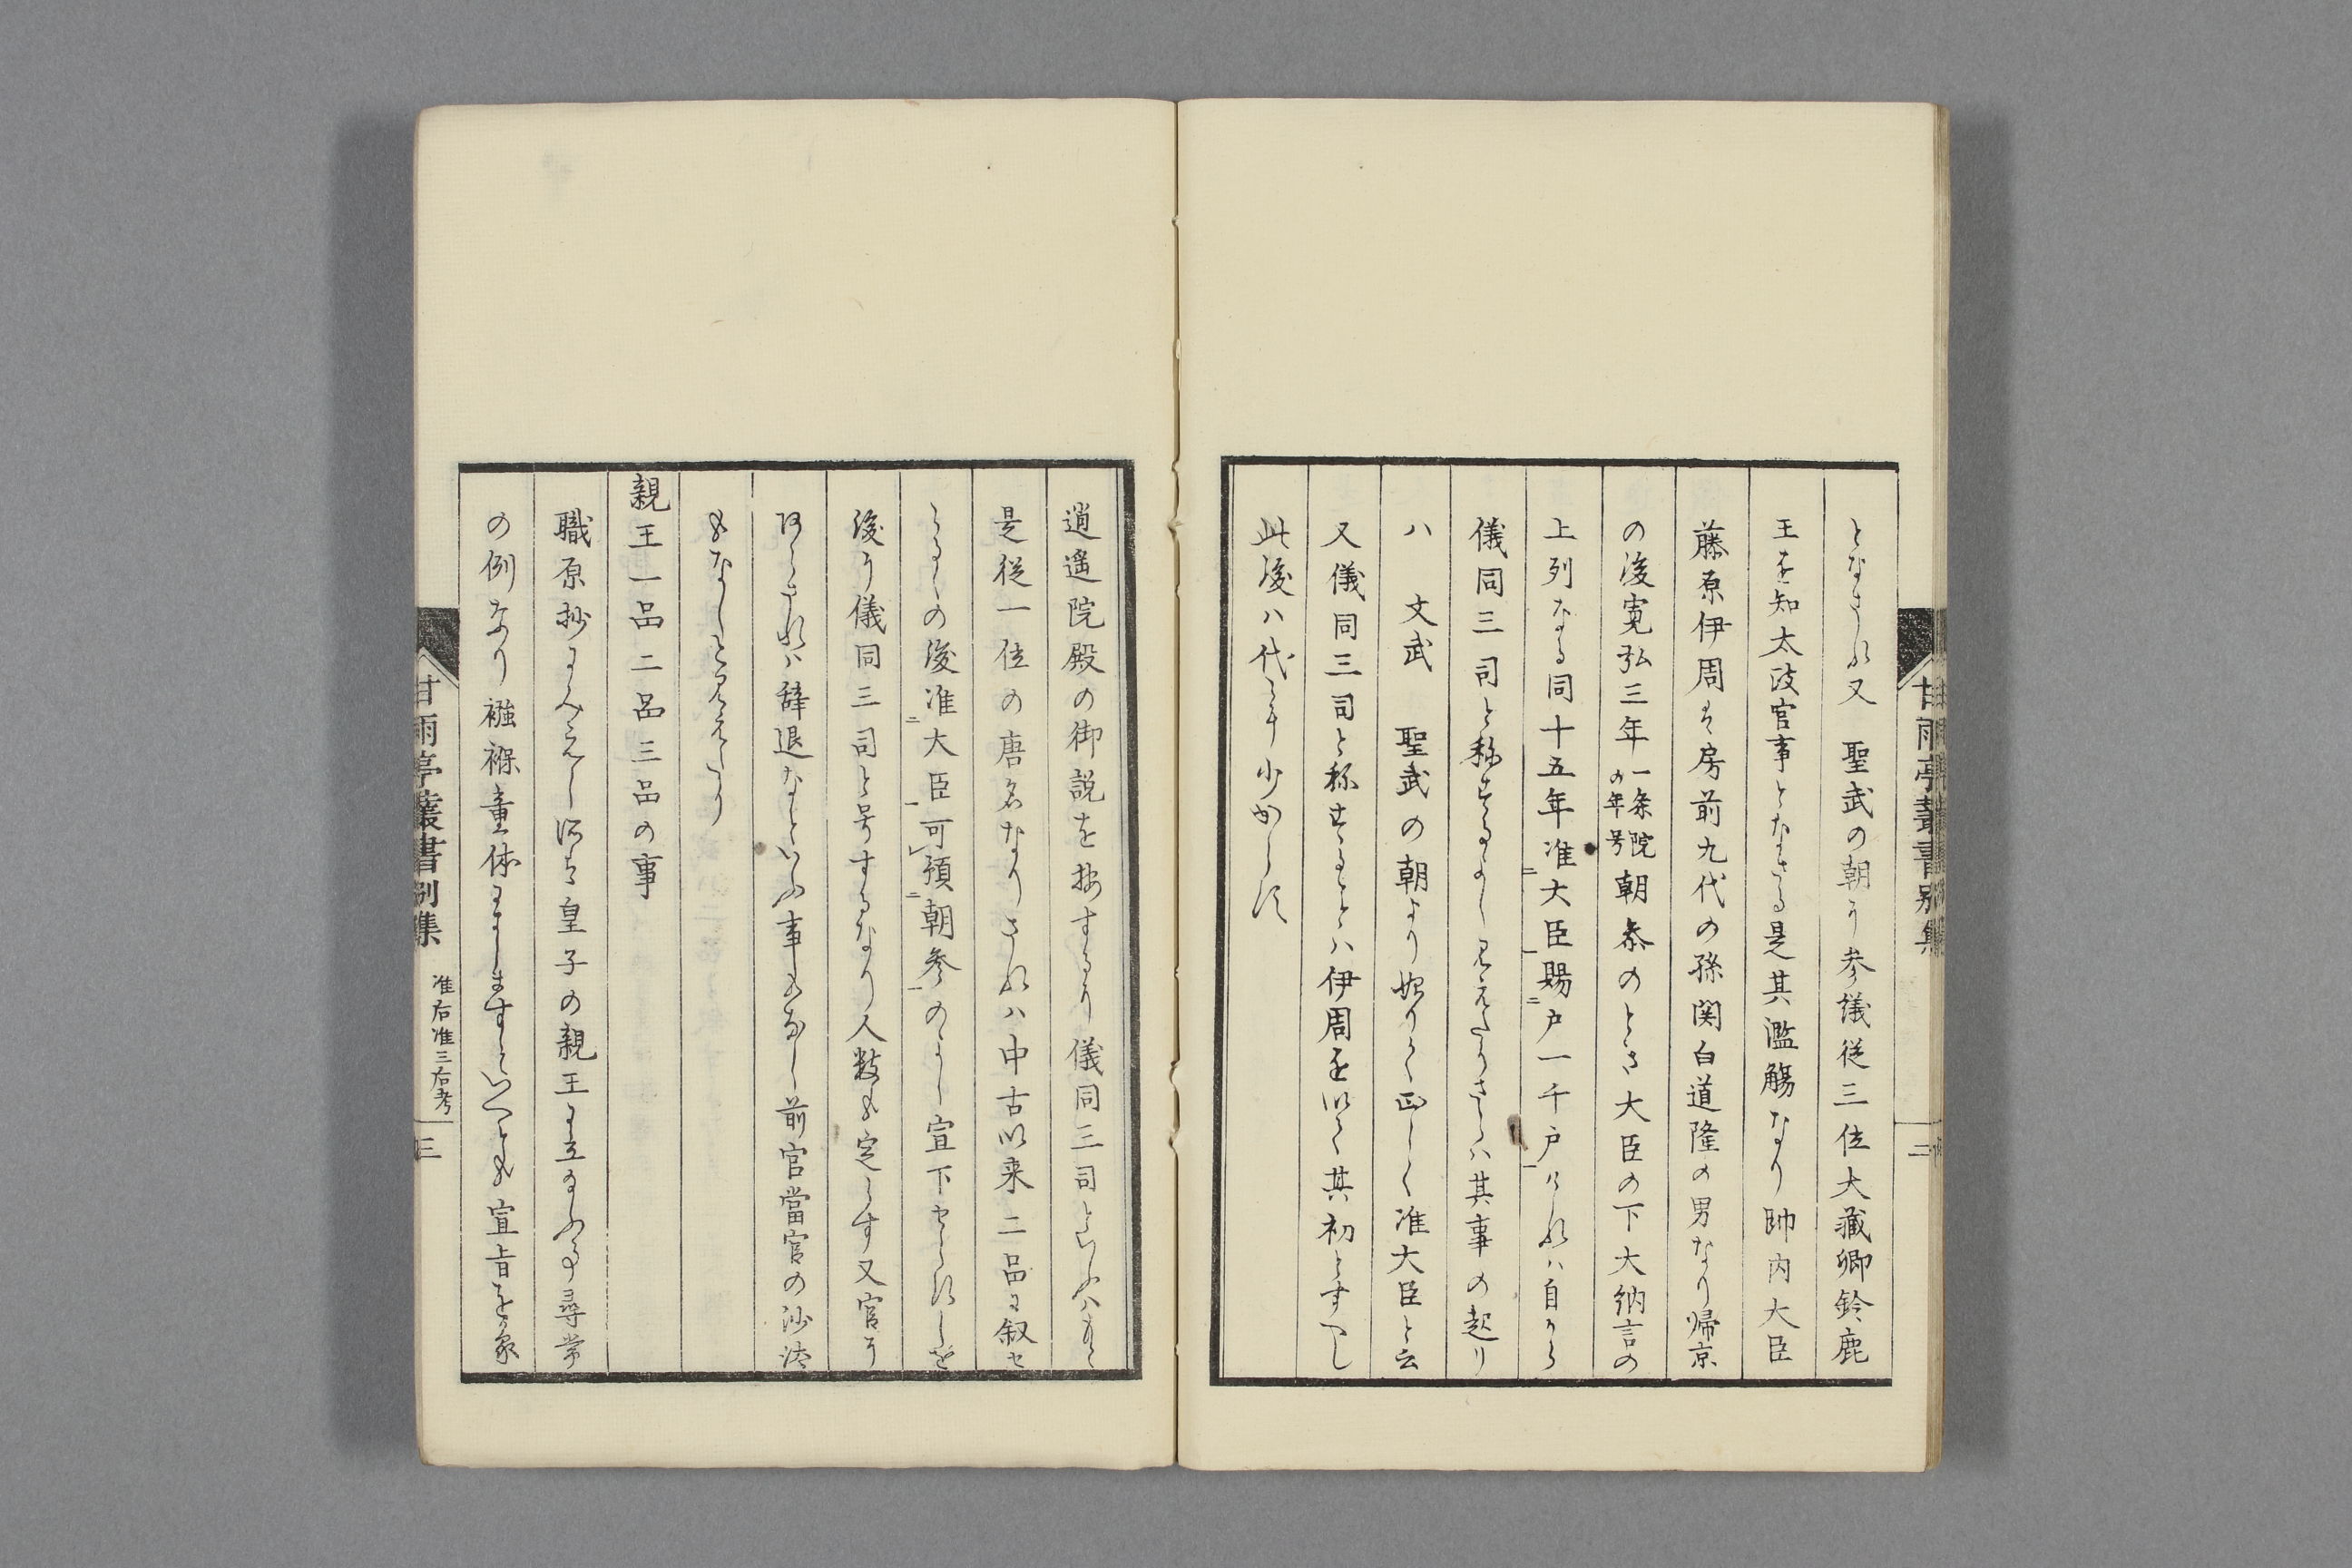 となされ又　聖武の朝に参議従三位大蔵卿鈴鹿
王を知太政官事となさる是其濫觴なり帥内大臣
藤原伊周は房前九代の孫関白道隆の男なり帰京
の後寛弘三年一条院の年号朝参のとき大臣の下大納言の
上列なる同十五年准大臣賜戸一千戸けれハ自から
儀同三司と称するよし見えたりさらハ其事の起り
ハ　文武　聖武の朝より始りて正しく准大臣と云
又儀同三司と称することハ伊周を以て其初とすへし
此後ハ代々少からす
逍遥院殿の御説を按するに儀同三司といふハもと
是従一位の唐名なりされハ中古以来二品に叙せ
らるゝの後准大臣可預朝参のよし宣下せられしを
後に儀同三司と号するなり人数も定らす又官に
あらされハ辞退なといふ事もなし前官當官の沙汰
もなしと見えたり
親王一品二品三品の事
職原抄にみえし汎ち皇子の親王に立給ふ事尋常
の例なり襁褓童体にましますといへとも宣旨を蒙
甘雨亭叢書別集
二
甘雨亭叢書別集　准后准三后考
三